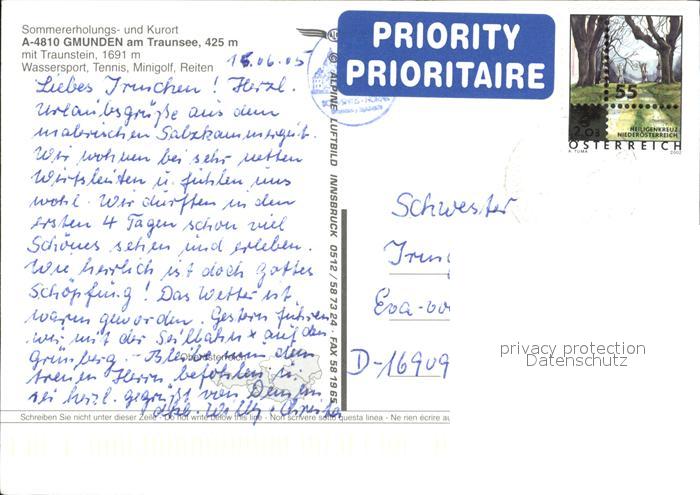 Sommererholungs- und Kurort
A-4810 GMUNDEN am Traunsee, 425 m
mit Traunstein, 1691 m
Wassersport, Tennis, Minigolf, Reiten
15.06.05
Liebes Irmchen! Herzl.
Urlaubsgrüße aus dem
malerischen Salzkammergut.
Wir wohnen bei sehr netten
Wirtsleuten u. fühlen uns
wohl. Wir durften in den
ersten 4 Tagen schon viel
Schönes sehen und erleben.
Wie herrlich ist doch Gottes
Schöpfung! Das Wetter ist
warm geworden. Gestern fuhren
wir mit der Seilbahn auf den
Grünberg. - Bleibe nun dem
treuen Herrn befohlen u.
sei herzl. gegrüßt von Deinen
Willy
Oberösterreich
Schreiben Sie nicht unter dieser Zeile - Do not write below this line - Non scrivere sotto questa linea - Ne rien écrire au
© ALPINE LUFTBILD INNSBRUCK 0512 / 58 73 24 · FAX 58 19 65
PRIORITY
PRIORITAIRE
55
2.03
HEILIGENKREUZ
NIEDERÖSTERREICH
ÖSTERREICH
A. TUMA
2002
Schwester
Eva-vo
D-16909
privacy protection
Datenschutz